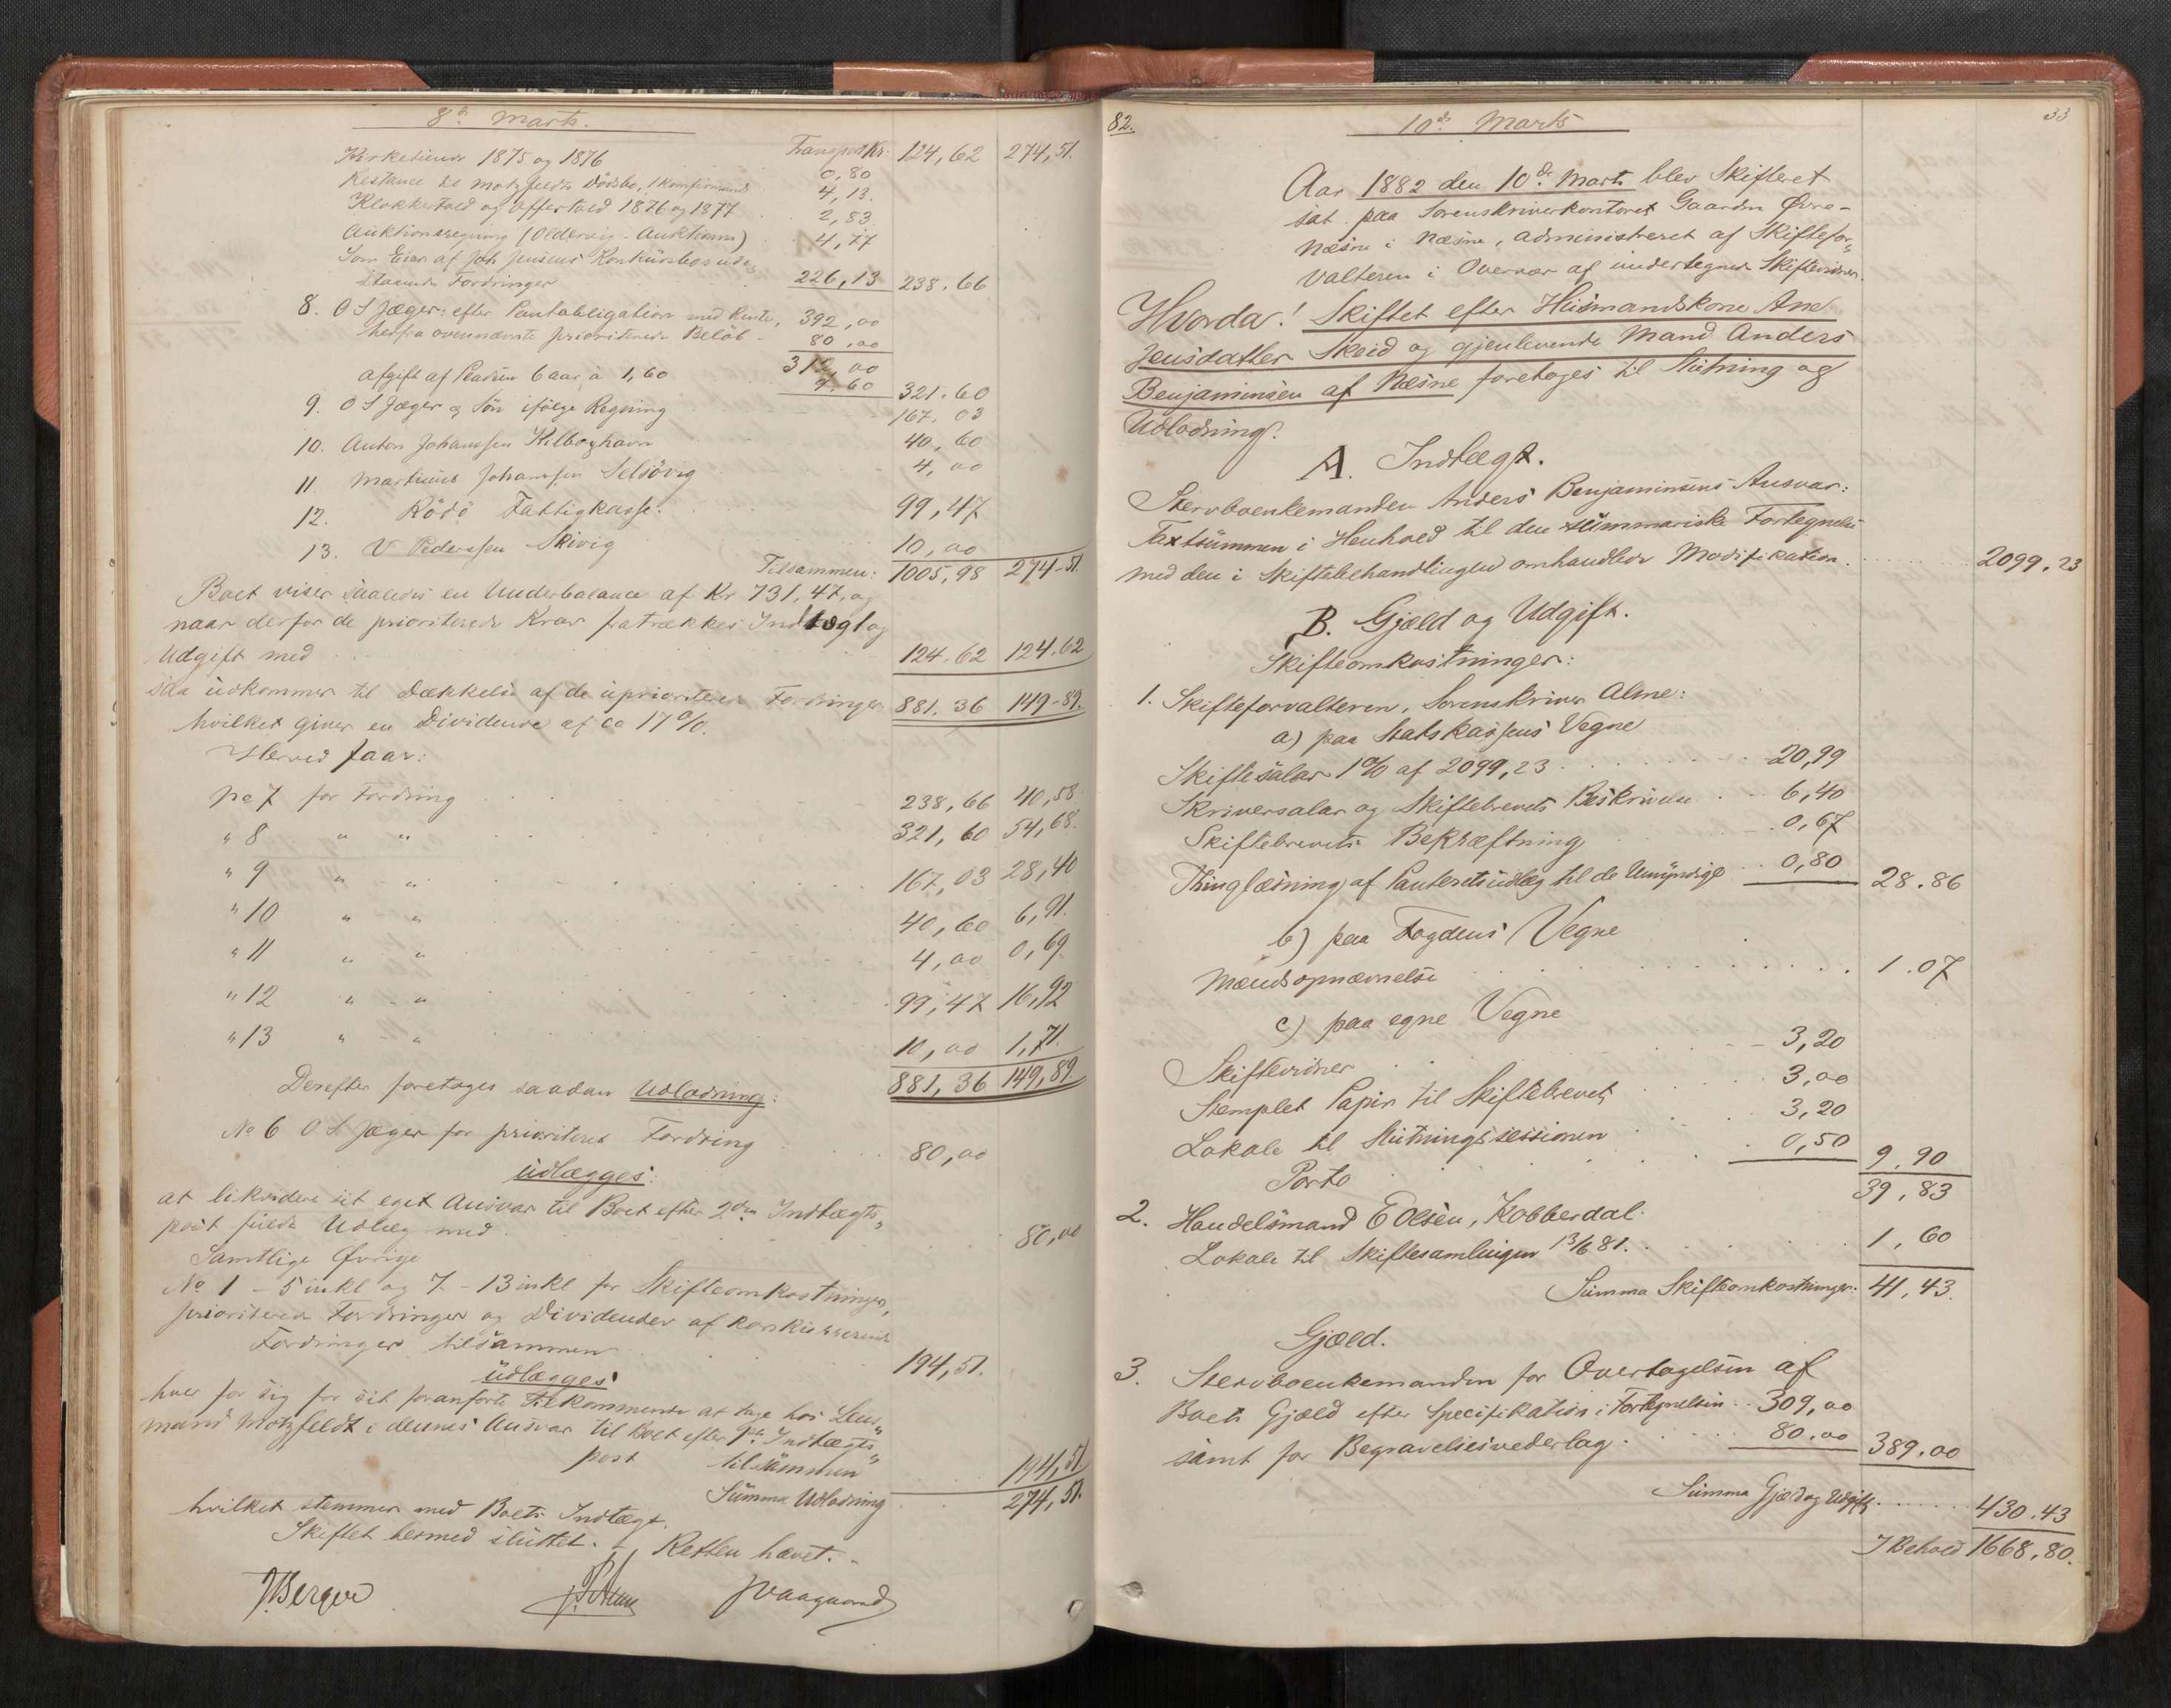 8de Marts.
Transport Kr. 124,62 274,51.
Kirketiende 1875 og 1876 0,80
Restance til Motzfeldts Dödsbo, 1 Konfirmand 4,13.
Klokkertold og Offertold 1876 og 1877 2,83
Auktionsregning (Oldervig-Auktionen) 4,77
Som Eier af Joh Jensens Konkursbos ude-
staaende Fordringer 226,13 238.66
8. O S Jæger: efter Pantobligation med Rente, 392,00
herfra ovennævnte prioriterede Beløb - 80,00
312,00
Afgift af Pladsen 6 aar à 1,60 9.60 321.60
9. O S Jæger & Sön ifölge Regning 167.03
10. Anton Johanssen Kilboghavn 40,60
11. Martinus Johanssen Selsövig 4,00
12. Rödö Fattigkasse. 99,47
13. V Pederssen Skivig 10,00
Tilsammen: 1005,98 274-51.
Boet viser saaledes en Underbalance af Kr 731,47, og
naar derfor de prioriterede Krav fratrækkes Indtægt og
Udgift med 124.62 124.62
saa udkommer til Dækkelse af de uprioriterede Fordringer 881.36 149-89.
hvilket giver en Dividende af ca 17%.
Herved faar:
No 7 for Fordring 238,66 40,58
" 8 " " 321,60 54,68.
" 9 " " 167,03 28,40
" 10 " " 40,60 6,91.
" 11 " " 4,00 0,69.
" 12 " " 99,47 16,92
" 13 " " 10,00 1,71.
881,36 149,89.
Derefter foretages saadan Udlodning:
No 6 O S Jæger for prioriteret Fordring 80,00
udlægges:
at likvidere sit eget Ansvar til Boet efter 2den Indtægts-
post fuldt Udlæg med 80,00
Samtlige Øvrige
No 1 - 5 inkl og 7 - 13 inkl for Skifteomkostninger,
prioriterede Fordringer og Dividender af
Fordringer tilsammen 194,51.
udlægges
hver for sig for sit foranførte Tilkommende at tage hos Lens-
mand Motzfeldt i dennes Ansvar til Boet efter 1ste Indtægts-
post tilsammen 194,51
Summa Udlodning 274,51.
hvilket stemmer med Boets Indtægt.
Skiftet hermed sluttet. - Retten hævet. -
J Berger
82. 10de Marts 33
Aar 1882 den 10de Marts blev Skifteret
sat paa Sorenskriverkontoret Gaarden Øvre-
Næsne i Næsne, administreret af Skiftefor-
valteren i Overvær af undertegnede Skiftevidner.
Hvorda! Skiftet efter Husmandskone Ane
Jensdatter Skeid og gjenlevende Mand Anders
Benjaminsen af Næsne foretoges til Slutning og
Udlodning.
A. Indtægt.
Stervboenkemanden Anders Benjaminsens Ansvar:
Taxtsummen i Henhold til den summariske Fortegnelse
med den i Skiftebehandlingen omhandlede Modifikation. 2099.23
B. Gjæld og Udgift.
Skifteomkostninger:
1. Skifteforvalteren, Sorenskriver Alme:
a) paa Statskassens Vegne
Skiftesalær 1% af 2099,23 20,99
Skriversalær og Skiftebrevets Beskrivelse 6,40
Skiftebrevets Bekræftning 0,67
Thinglæsning af Panteretsudlæg til de Umyndige 0,80 28.86
b) paa Fogdens Vegne
Mændsopnævnelse 1.07
c) paa egne Vegne
Skiftevidner 3,20
Stemplet Papir til Skiftebrevet 3,00
Lokale til Slutningssessionen 3,20
Porto 0,50 9.90
39,83
2. Handelsmand E Olsen, Kobberdal.
Lokale til Skiftesamlingen 13/6 81. 1,60
Summa Skifteomkostninger: 41,43.
Gjæld.
3. Stervboenkemanden for Overtagelsen af
Boets Gjæld efter Specifikation i Fortegnelsen 309,00
samt for Begravelsesvederlag. 80.00 389.00
Summa Gjæld og Udgift 430.43
I Behold 1668,80.